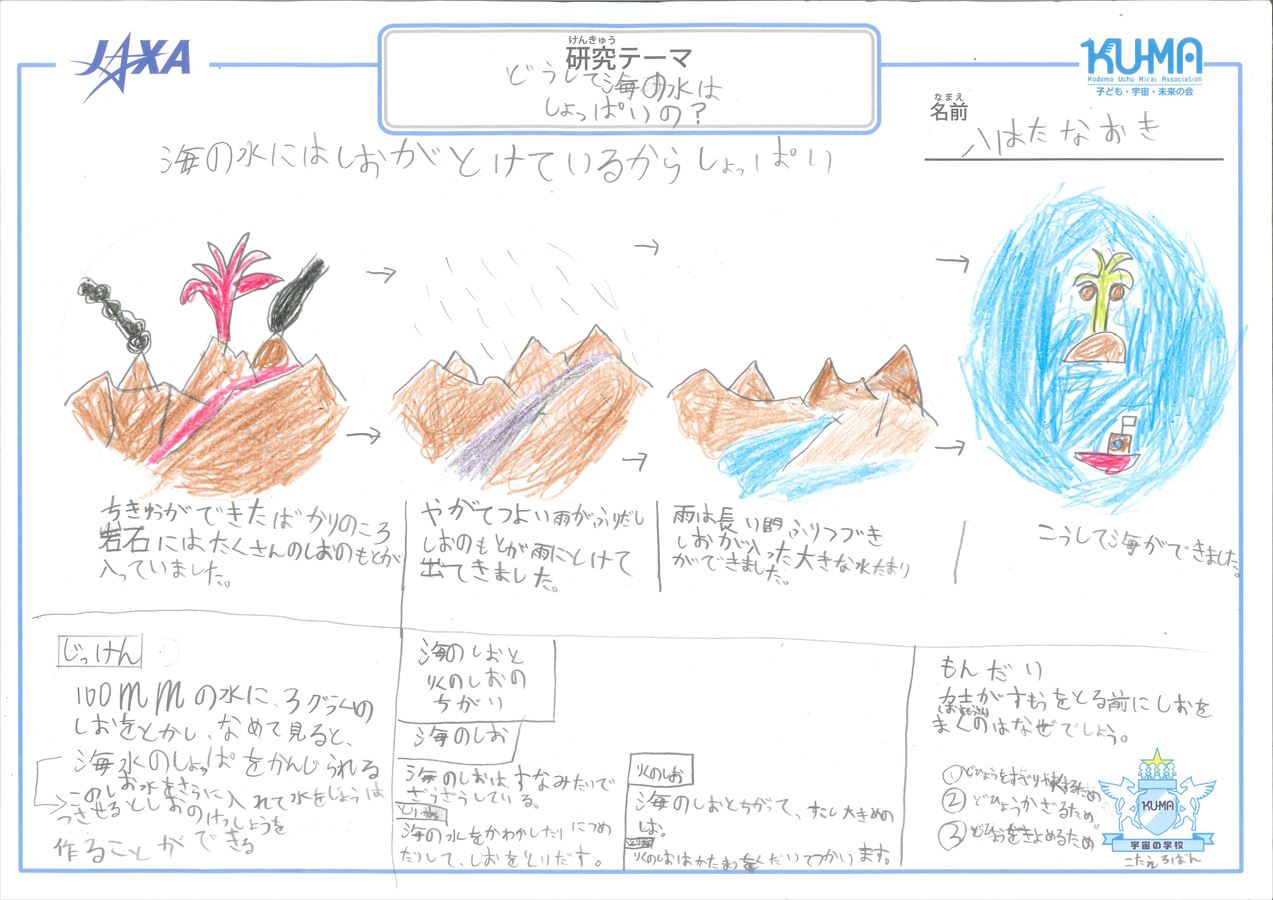 JAXA
けんきゅう
研究テーマ
どうして海の水は
しょっぱいの？
KU-MA
Kodomo Uchu Mirai Association
子ども・宇宙・未来の会
なまえ
名前
八はたなおき
海の水にはしおがとけているからしょっぱい
ちきゅうができたばかりのころ
岩石にはたくさんのしおのもとが
入っていました。
やがてつよい雨がふりだし
しおのもとが雨にとけて
出てきました。
雨は長い間ふりつづき
しおが入った大きな水たまり
ができました。
こうして海ができました。
じっけん
100mmの水に、3グラムの
しおをとかし、なめて見ると、
海水のしょっぱをかんじられる
このしお水をさらに入れて水をじょうは
つさせるとしおのけっしょうを
作ることができる
海のしおと
りくのしおの
ちがい
海のしお
海のしおはすなみたいで
ざらざらしている。
とり方
海の水をかわかしたりにつめ
たりして、しおをとりだす。
りくのしお
海のしおとちがて、すこし大きめの
しお。
りくのしおはかたまりをくだいてつかいます。
もんだい
力士がすもうをとる前にしおを
まくのはなぜでしょう。
①どひょうをすべりやすくするため
②どひょうかざるため
③どひょうをきよめるため
KU-MA
宇宙の学校
こたえ3ばん